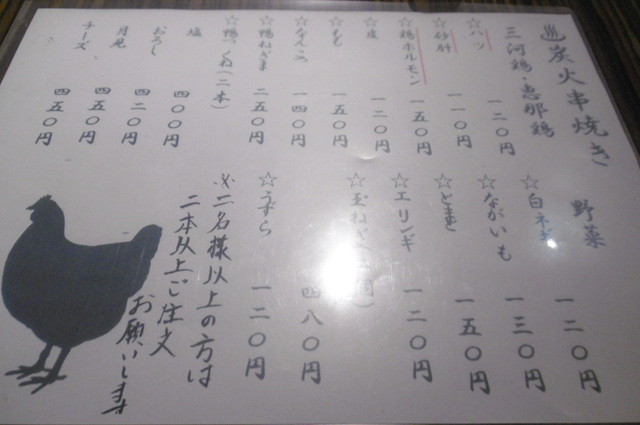 ♨炭火串焼き
三河鶏・恵那鶏
☆ハツ 一二〇円
☆砂肝 一一〇円
☆鶏ホルモン 一五〇円
☆皮 一二〇円
☆もも 一五〇円
☆なんこつ 一四〇円
☆鴨ねぎま 二五〇円
☆鴨つくね(二本)
塩 四〇〇円
おろし 四二〇円
月見 四五〇円
チーズ 四五〇円
野菜
☆白ネギ 一二〇円
☆ながいも 一三〇円
☆とまと 一五〇円
☆エリンギ 一二〇円
☆玉ねぎ 四八〇円
☆うずら 一二〇円
※二名様以上の方は
二本以上ご注文
お願いします